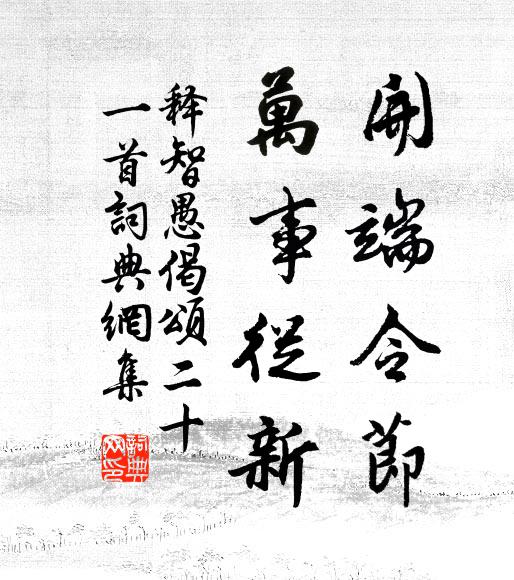 開端令節
萬事從新
释智愚偈頌二十
一首詞典網集
詞典
网印